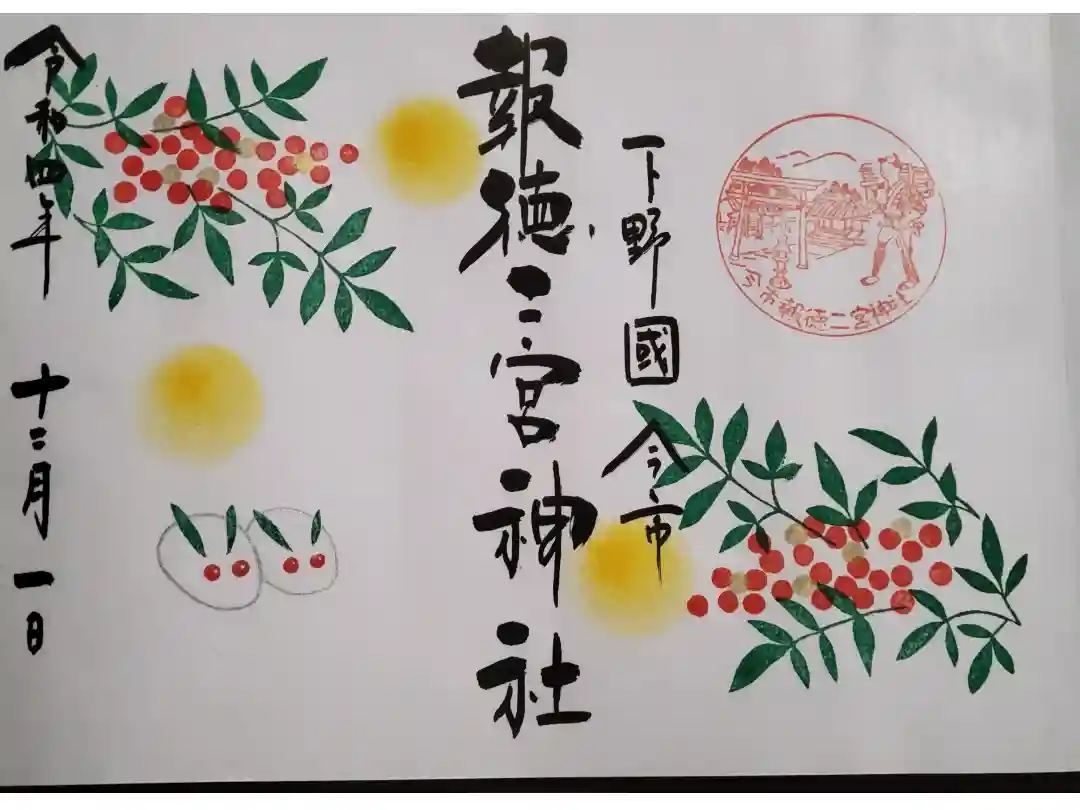 下野國今市
今市報徳二宮神社
報徳二宮神社
令和四年十二月一日